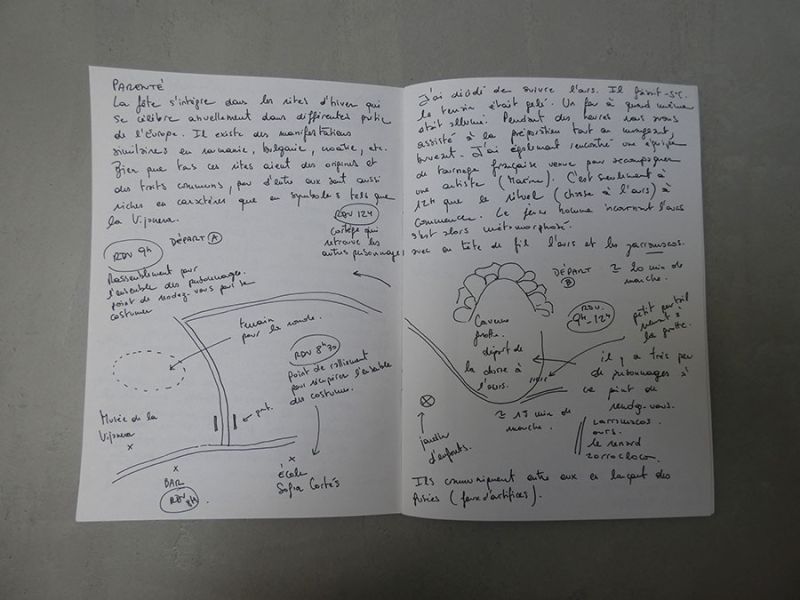 PARENTÉ
La fête s'intègre dans les rites d'hiver qui
se célèbre annuellement dans différentes partie
de l'Europe. Il existe des manifestations
similaires en roumanie, bulgarie, croatie, etc.
Bien que tous ces rites aient des origines et
des traits communs, peu d'entre eux sont aussi
riches en caractères que en symboles tels que
la Vijanera.
RDV 12H
cortège qui
retrouve les
autres personnages
RDV 9h
DÉPART A
Rassemblement pour
l'ensemble des personnages.
point de rendez-vous pour se
costumer
terrain
pour la ronde.
RDV 8h30
point de ralliement
pour récupérer l'ensemble
des costumes.
Musée de la
Vijanera
pont.
BAR
RDV 8H
École
Sofia Cortés
J'ai décidé de suivre l'ours. Il faisait -5°C.
le terrain était gelé. Un feu à quand même
était allumé. Pendant des heures nous avons
assisté à la préparation tout en mangeant,
buvant. J'ai également rencontré une équipe
de tournage française venue pour accompagner
une artiste (Marine). C'est seulement à
12H que le rituel (chasse à l'ours) à
commencé. Le jeune homme incarnant l'ours
s'est alors métamorphosé.
avec en tête de fil l'ours et les zarramacos.
DÉPART
B
≃ 20 min de
marche.
RDV.
9h-12H
petit portail
menant à
la grotte.
Caverne
grotte.
départ de
la chasse à
l'ours.
il y a très peu
de personnages à
ce point de
rendez-vous.
≃ 15 min de
marche.
jardin
d'enfants.
zarramacos.
ours.
le renard
zorrocloco
Ils communiquent entre eux en lançant des
fusées (feux d'artifices).